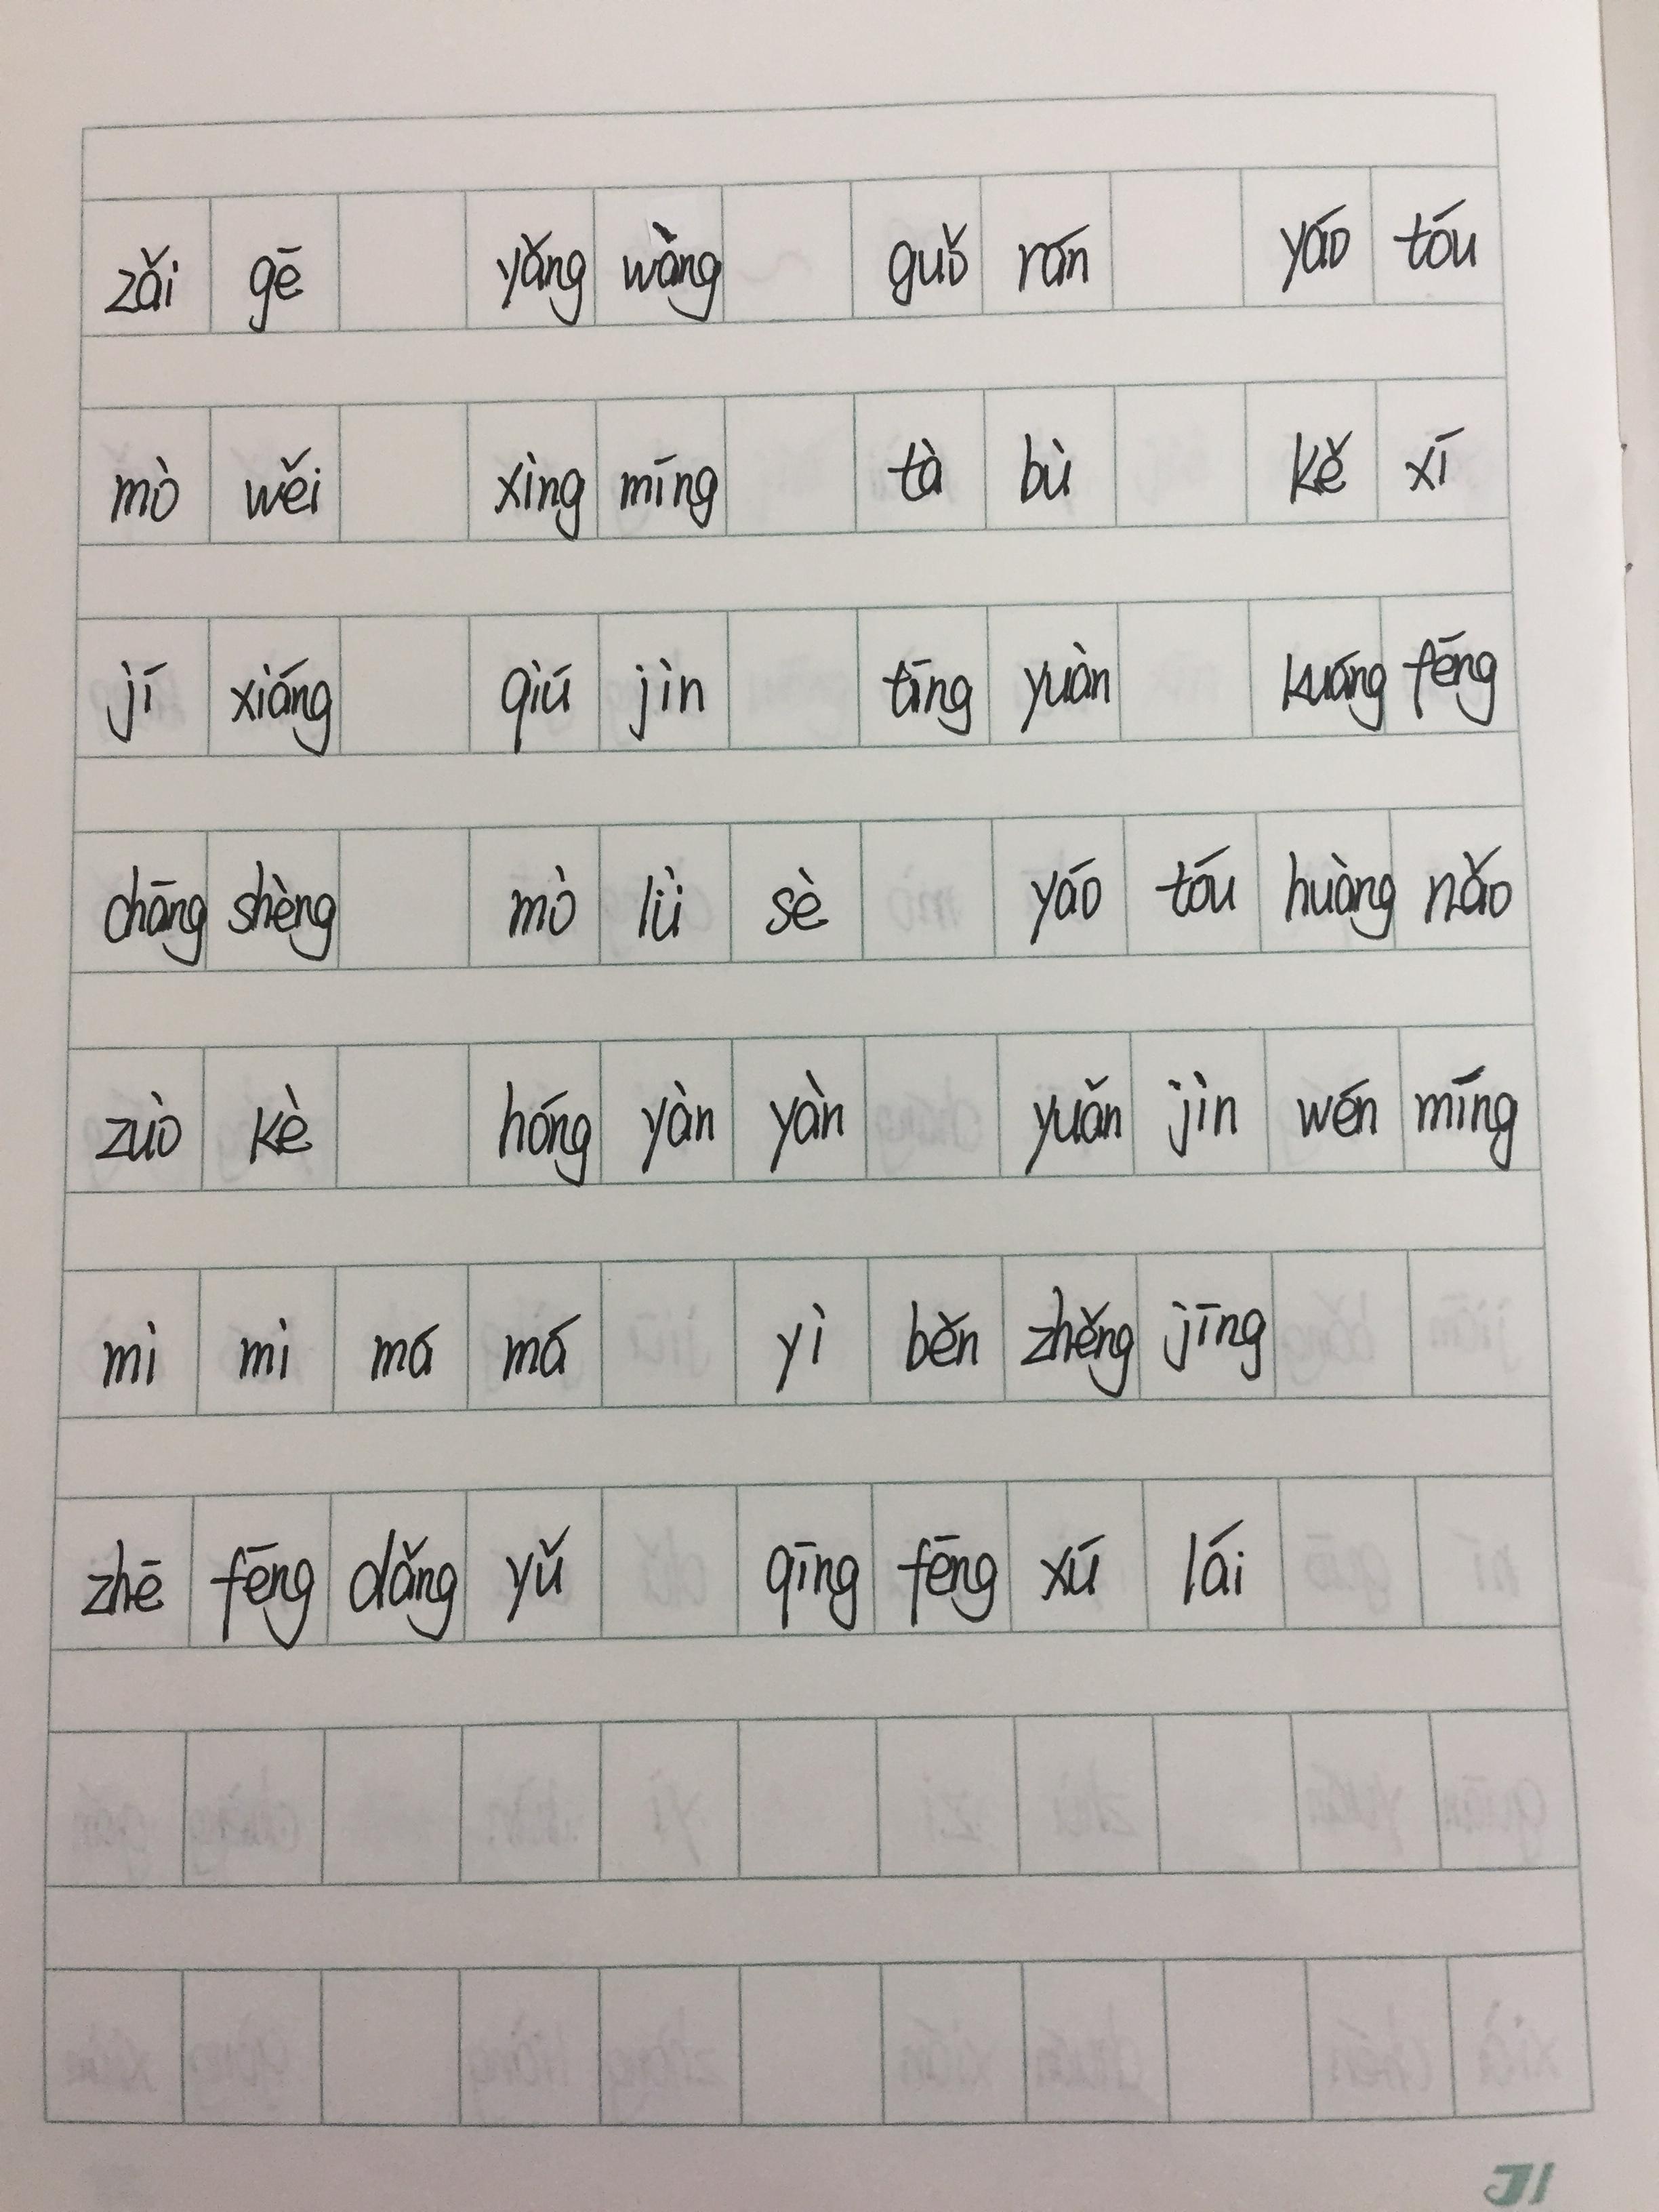 zǎi gē yǎng wàng guǒ rán yáo tóu
mò wěi xìng míng tà bù kě xí
jí xiáng qiú jìn tīng yuàn kuáng fēng
chāng shèng mò lǜ sè yáo tóu huàng nǎo
zuò kè hóng yàn yàn yuǎn jìn wén míng
mì mì má má yì běn zhěng jīng
zhē fēng dǎng yǔ qīng fēng xú lái